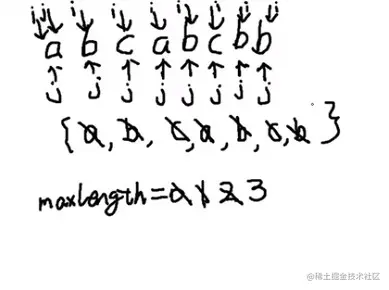 i j i i i i i i i
a b c a b c b b
j j j j j j j j
{a, b, c, a, b, c, b }
maxlength = 0 1 2 3
@稀土掘金技术社区